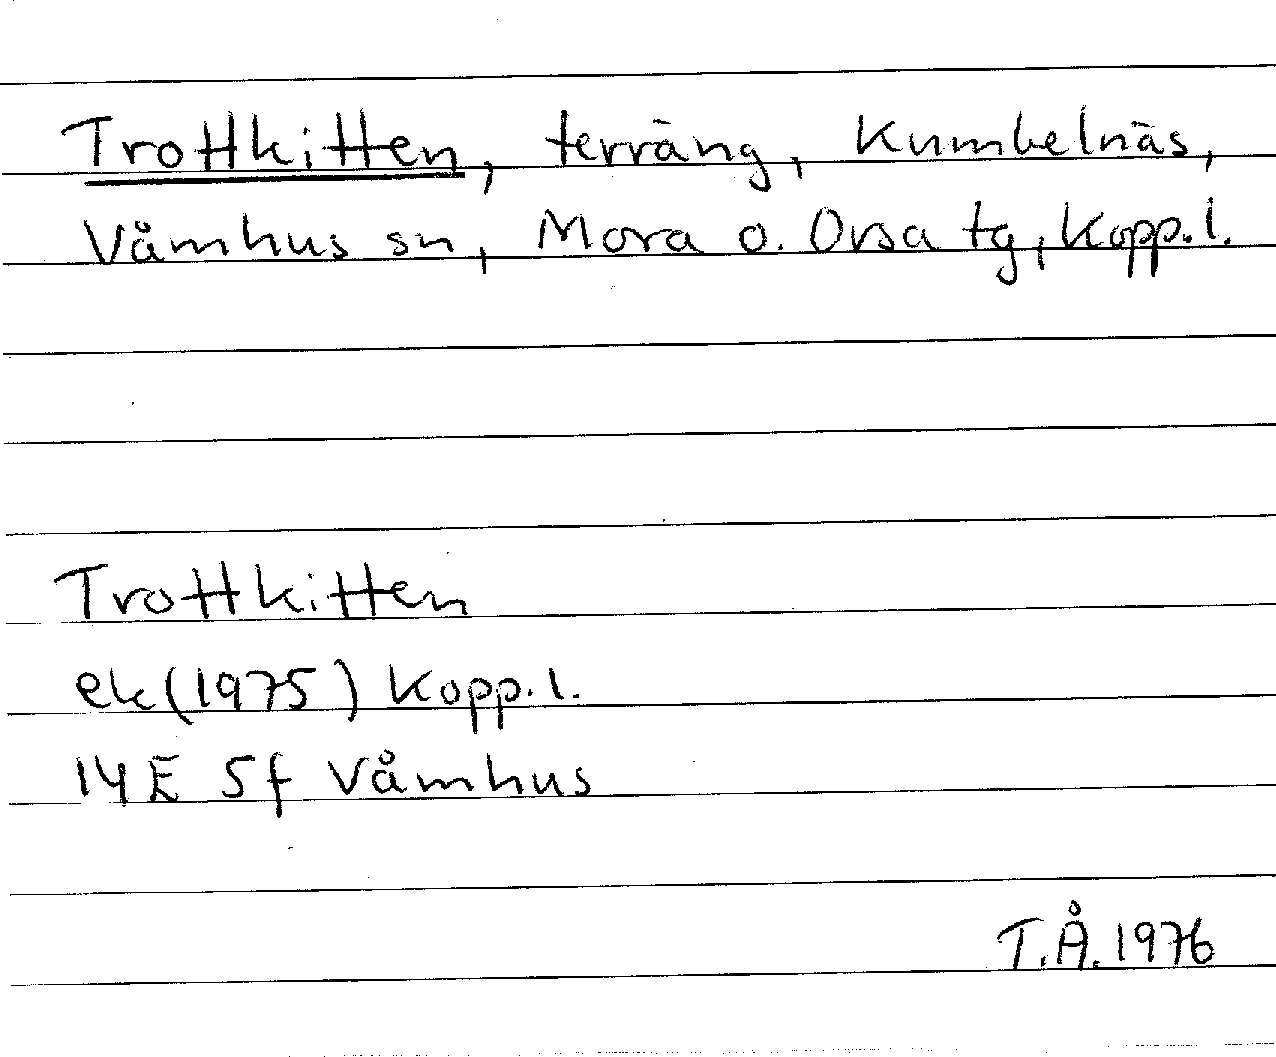 Trottkitten, terräng, Kumbelnäs,
Våmhus sn, Mora o. Orsa tg, Kopp. l.
Trottkitten
ek (1975) Kopp. l.
14E 5f Våmhus
T.Å. 1976